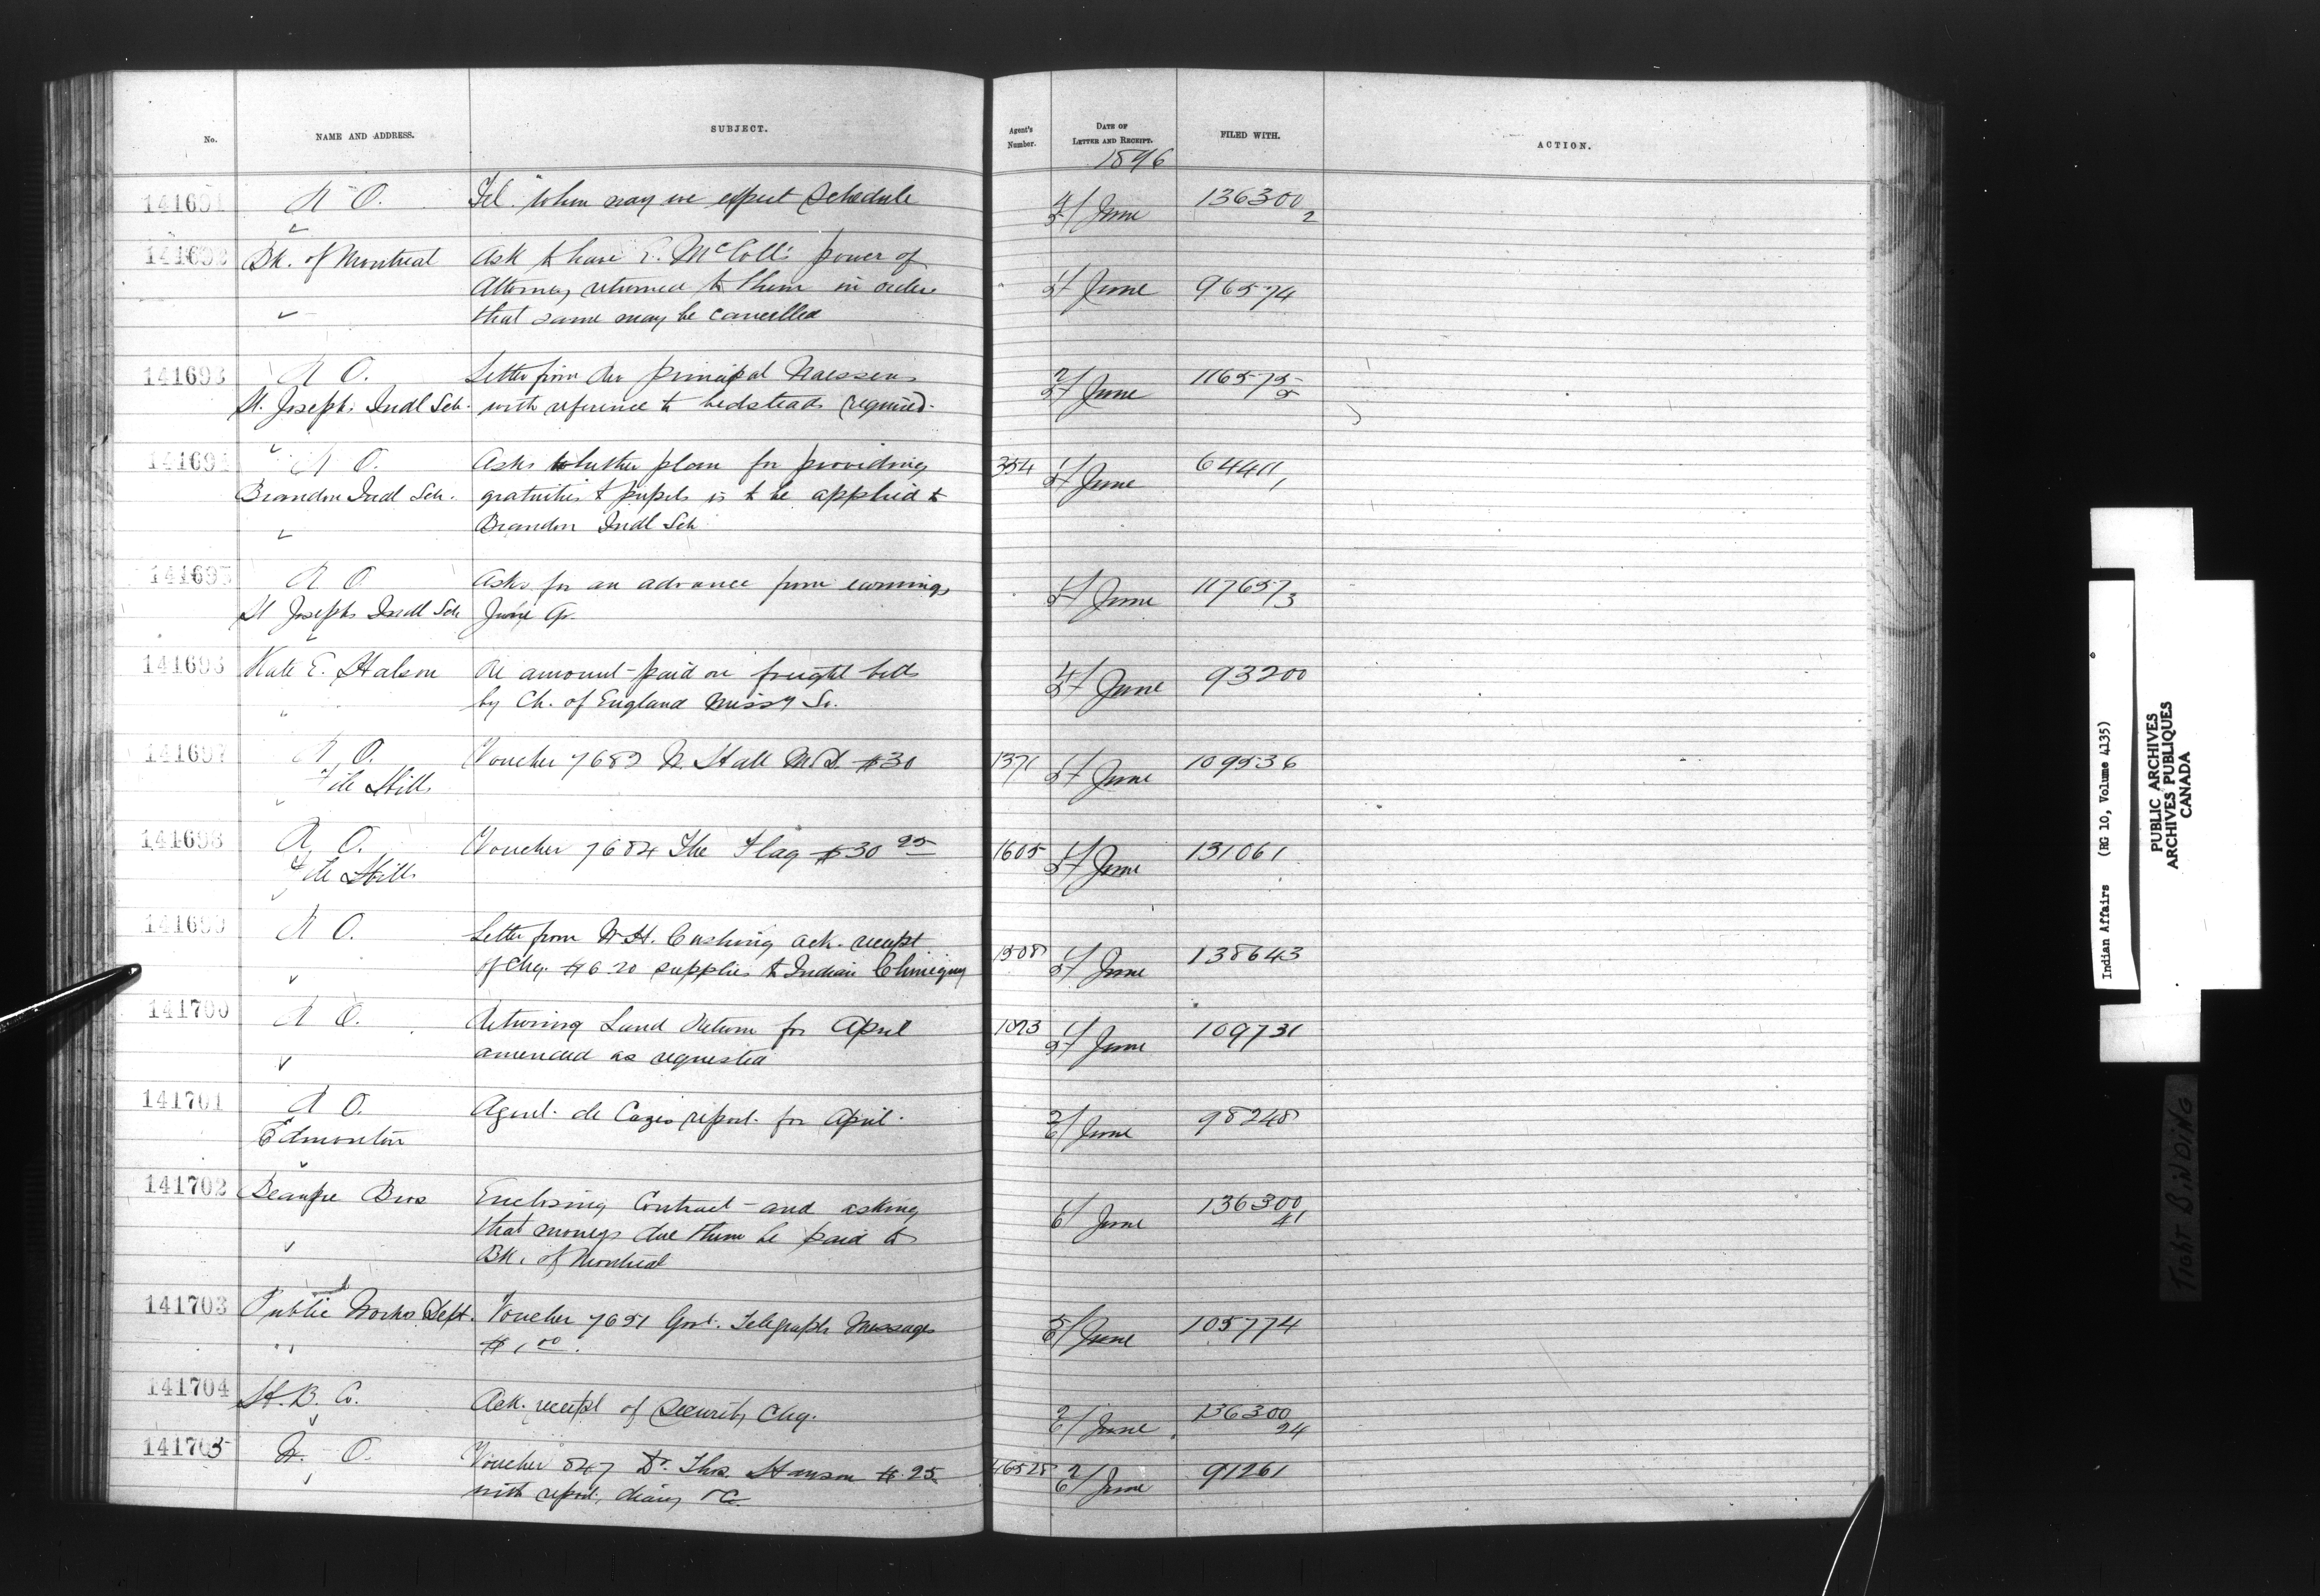 No. NAME AND ADDRESS. SUBJECT. Agent's Number. DATE OF LETTER AND RECEIPT. FILED WITH. ACTION.
1896
141691 R O. Tel. "When may we expect Schedule 4/5 June 136300 2
141692 Bk. of Montreal Ask to have E. McColl's power of
Attorney returned to them in order 4/5 June 96574
that same may be cancelled
141693 R O. Letter from Rev principal Naessens 2/5 June 116575 2
St. Josephs Indl Sch. with reference to bedsteads required.
141694 R O. Asks whether plan for providing 354 1/5 June 64411 1
Brandon Indl Sch. gratuities to pupils is to be applied to
Brandon Indl Sch
141695 R O. Asks for an advance from earnings 1/5 June 117657 3
St Josephs Indl Sch June Qr.
141696 Kate E. Halson Re amount paid on freight bills 4/5 June 93200
by Ch. of England Missy So.
141697 R O. Voucher 7683 N. Hall M.D. $30 1371 1/5 June 109536
File Hills
141698 R O. Voucher 7684 The Flag $30 25 1605 1/5 June 131061
File Hills
141699 R O. Letter from W.H. Cushing ack. receipt 1508 1/5 June 138643
of Chq. $6.20 supplies to Indian Chiniquy
141700 R O. Returning Land Return for April 1073 1/5 June 109731
amended as requested
141701 R O. Agent de Cazes report for April. 2/6 June 98248
Edmonton
141702 Beaupre Bros Enclosing Contract and asking 1/6 June 136300 41
that moneys due them be paid to
Bk. of Montreal
141703 Public Works Dept. Voucher 7651 Govt. Telegraph Messages 5/6 June 105774
$1.00.
141704 H. B. Co. Ack. receipt of Security Chq. 2/6 June 136300 24
141705 W. O. Voucher 847 Dr. Thos. Hanson $25 46528 2/6 June 91261
with report, diary &c
Indian Affairs (RG 10, Volume 4135)
PUBLIC ARCHIVES
ARCHIVES PUBLIQUES
CANADA
TIGHT BINDING